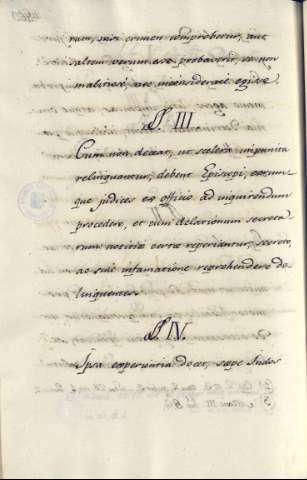 rum, nisi crimen comprobetur, aut
saltem verum esse probaverit, se non
malitiosè, nec inconsideratè egisse
§. III.
Cum non deceat, ut scelera impunita
relinquantur, debent Episcopi, eorum
que judices ex officio ad inquirendum
procedere, et cum delationum secreta
rum notitiæ certæ reperiantur, secreto,
ac sine infamatione reprehendere de
linquentes.
§. IV.
Ipsa experientia docet, sæpe Indos